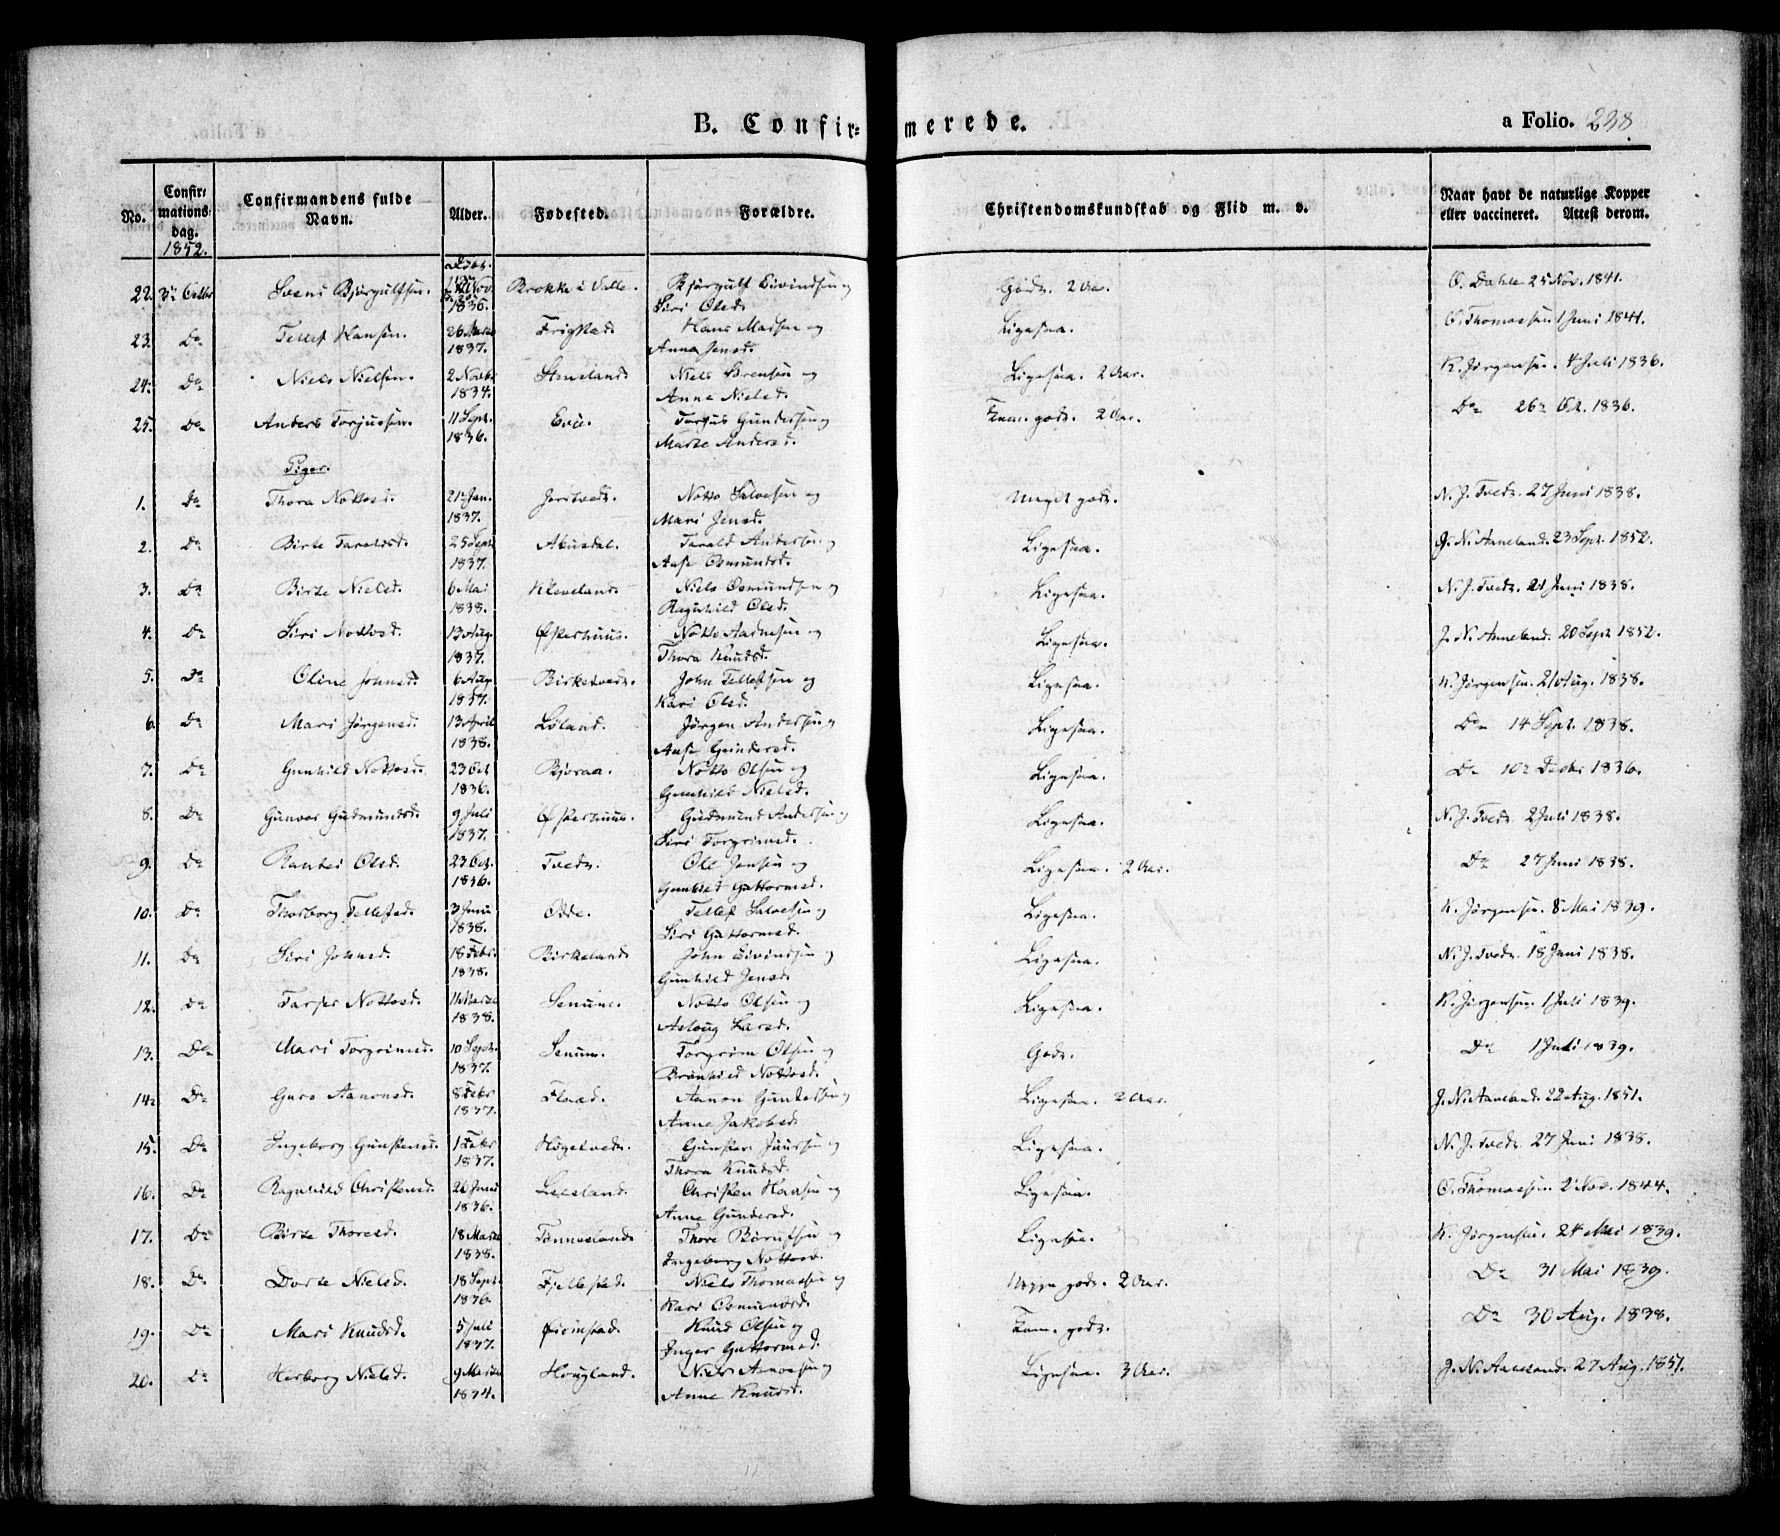 B. Confir=merede.
a Folio. 238
No. Confir=mations=dag. 1852. Confirmandens fulde Navn. Alder. Fødested. Forældre. Christendomskundskab og Flid m. v. Naar havt de naturlige Kopper eller vaccineret. Attest derom.
22. Sveni Bjørgulfsen. 1836. Brokke i Valle. Bjørgulf Eivindsen og Godt. 2 Aar. O. Dahle 25 Nov. 1841.
Siri Olsd.
23. Do Tellef Hansen. 26 Marts Frigstad Hans og Ligesaa. O. Thomassen 1 Juni 1841.
1837. Anna Jensd.
24. Do Niels Nielsen. 2 Novbr Steneland Niels Sørensen og Ligesaa. 2 Aar. K. Jørgensen. 4 Juli 1836.
1834. Anne Nielsd.
25. Do Anders Torjussen. 11 Sept. Evie. Torjus Gundersen og godt. 2 Aar. Do 26 Oct. 1836.
1836. Marte Andersd.
Piger.
1. Do Thora Nottosd. 21 Jan. Notto Salvesen og Meget godt. N. J. Tvedt. 27 Juni 1838.
1837. Mari Jensd.
2. Do Birte Taraldsd. 25 Sept Abusdal. Tarald Andersen og Ligesaa. J. N. Aaneland. 23 Sept. 1852.
1837. Aase Osmundsd.
3. Do Birte Nielsd. 6 Mai Kleveland. Niels Osmundsen og Ligesaa. N. J. Tvedt. 21 Juni 1838.
1838. Ragnhild Olsd.
4. Do Siri Nottosd. 13 Aug. Østerhuus. Notto Aadnesen og Ligesaa. J. N. Aaneland. 20 Sept 1852.
1837. Thora Knudsd.
5. Do Oline Johnsd. 6 Aug. Birketvedt. John Tellefsen og Ligesaa. K. Jørgensen. 21 Aug. 1838.
1837. Kari Olsd.
6. Do Mari Jørgensd. 13 April Løland. Jørgen Andersen og Ligesaa. Do 14 Sept. 1838.
1838. Aase Gundersd.
7. Do Gunhild Nottosd. 23 Oct Bjoraa. Notto Olsen og Ligesaa. Do 10 Decbr 1836.
1836. Gunhild Nielsd.
8. Do Gunvor Gudmundsd. 9 Juli Østerhuus. Gudmund Andersen og Ligesaa. N. J. Tvedt. 2 Juli 1838.
1837. Siri Torgrimsd.
9. Do Rantei Olsd. 23 Oct. Tvedt. Ole Jensen og Ligesaa. 2 Aar. Do 27 Juni 1838.
1836. Gunhild Guttormsd.
10. Do Thorborg Tellefsd. 3 Juni Odde. Tellef Salvesen og Ligesaa. K. Jørgensen. 8 Mai 1839.
1838. Siri Guttormsd.
11. Do Siri Johnsd. 18 Febr. Birkeland John Eivindsen og Ligesaa. N. J. Tvedt. 18 Juni 1838.
1838. Gunhild Jensd.
12. Do Tarjer Nottosd. 11 Marts Senum. Notto Olsen og Ligesaa. K. Jørgensen. 1 Juli 1839.
1838. Aslaug Larsd.
13. Do Mari Torgrimsd. 10 Sept. Senum. Torgrim Olsen og Godt. Do 1 Juli 1839.
1837. Brønhild Nottosd.
14. Do Guro Aanonsd. 8 Febr Flaad. Aanon Gundersen og Ligesaa. 2 Aar. J. N. Aaneland. 22 Aug. 1851.
1837. Anne Jakobsd.
15. Do Ingeborg Gunstensd. 1 Febr Høgetvedt. Gunsten og Ligesaa. N. J. Tvedt. 27 Juni 1838.
1837. Thora Knudsd.
16. Do Ragnhild Christensd. 26 Juni Christen Hansen og Ligesaa. O. Thomassen. 2 Nov. 1844.
1836. Anne Gundersd.
17. Do Birte Thoresd. 18 Marts Tønnesland Thore og Ligesaa. K. Jørgensen. 24 Mai 1839.
1838. Ingeborg Nottosd.
18. Do Dorte Nielsd. 18 Sept. Fjellestad. Niels Thomassen og godt. 2 Aar. Do 31 Mai 1839.
1836. Kari Osmundsd.
19. Do Mari Knudsd. 5 Juli Knud Olsen og godt. Do 30 Aug. 1838.
1837. Inger Guttormsd.
20. Do Herborg Nielsd. 9 Marts Hougland. Niels og Ligesaa. 3 Aar. J. N. Aaneland. 27 Aug. 1851.
1834. Anne Knudsd.